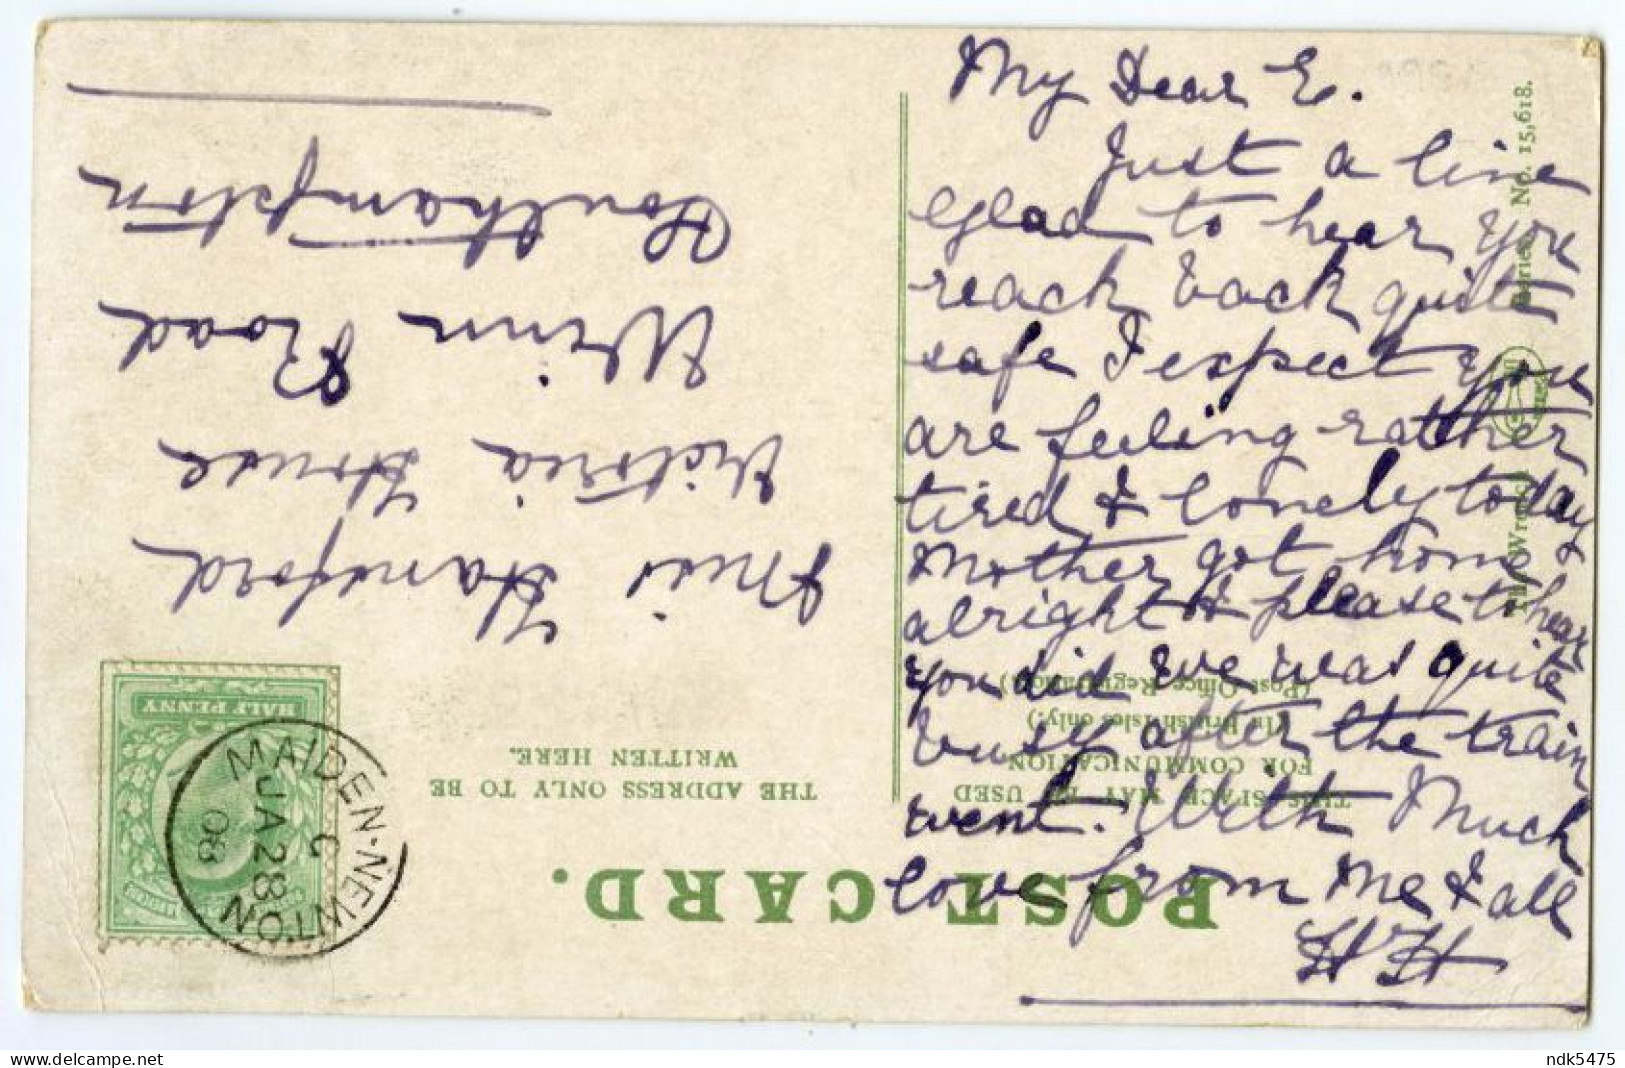 My Dear E.
Just a line
glad to hear you
reach back quite
safe I expect you
are feeling rather
tired & lonely today
Mother got home
alright & please to hear
you did we was quite
busy after the train
went. With Much
love from Me & all
H H
Miss Hansford
Victoria House
Winn Road
Southampton
POST CARD.
THE ADDRESS ONLY TO BE
WRITTEN HERE.
THIS SPACE MAY BE USED
FOR COMMUNICATION
(In British Isles only.)
(Post Office Regulation.)
HALF PENNY
MAIDEN-NEWTON
C
JA 28
08
The "Wrench" Series, No. 15,618.
ndk5475